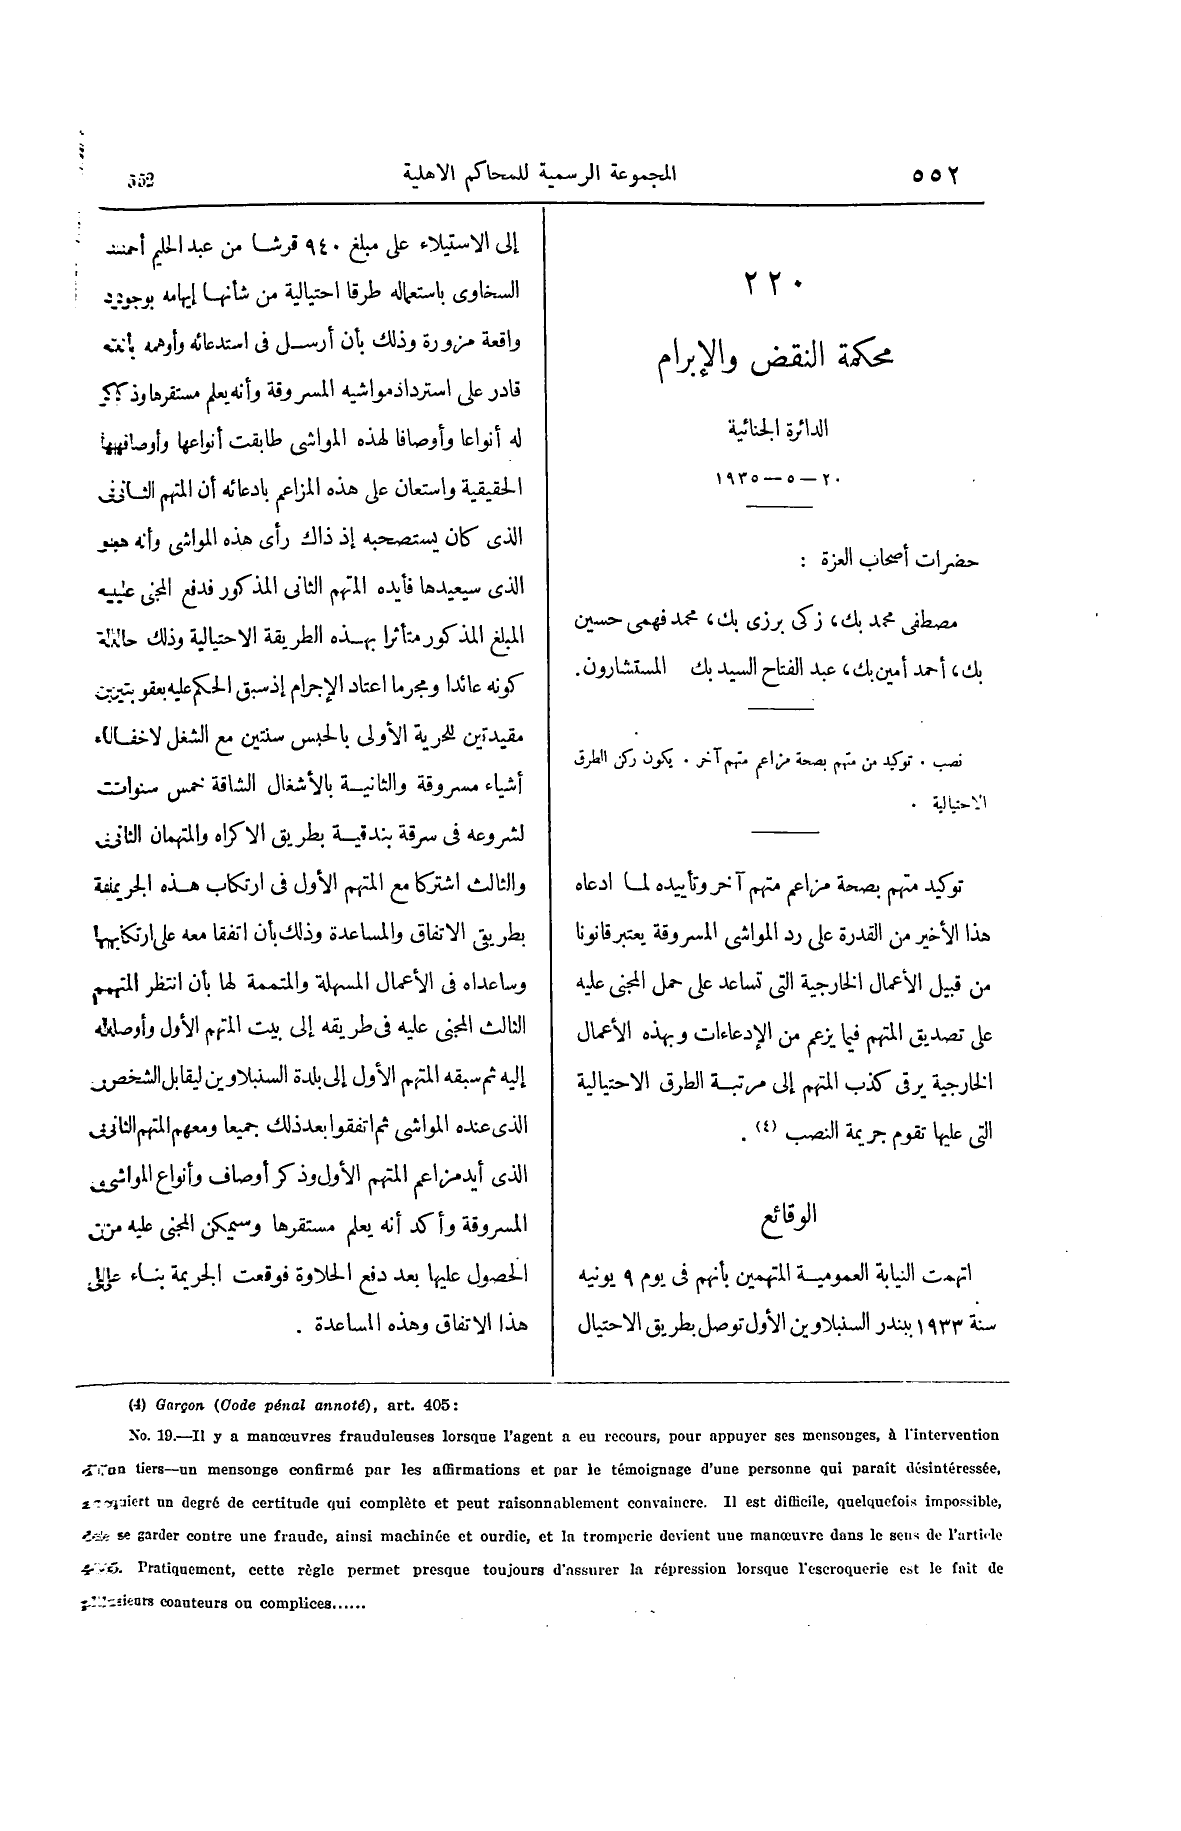 ٥٥٢
المجموعة الرسمية للمحاكم الاهلية
552
٢٢٠
محكمة النقض والإبرام
الدائرة الجنائية
٢٠ — ٥ — ١٩٣٥
حضرات أصحاب العزة :
مصطفى محمد بك، زكى برزى بك، محمد فهمى حسين
بك، أحمد أمين بك، عبد الفتاح السيد بك المستشارون.
نصب . توكيد من متهم بصحة مزاعم متهم آخر . يكون ركن الطرق
الاحتيالية .
توكيد متهم بصحة مزاعم متهم آخر وتأييده لما ادعاه
هذا الأخير من القدرة على رد المواشى المسروقة يعتبر قانونا
من قبيل الأعمال الخارجية التى تساعد على حمل المجنى عليه
على تصديق المتهم فيما يزعم من الإدعاءات وبهذه الأعمال
الخارجية يرقى كذب المتهم إلى مرتبة الطرق الاحتيالية
التى عليها تقوم جريمة النصب (٤) .
الوقائع
اتهمت النيابة العمومية المتهمين بأنهم فى يوم ٩ يونيه
سنة ١٩٣٣ ببندر السنبلاوين الأول توصل بطريق الاحتيال
إلى الاستيلاء على مبلغ ٩٤٠ قرشا من عبد الحليم أحمد
السخاوى باستعماله طرقا احتيالية من شأنها إيهامه بوجود
واقعة مزورة وذلك بأن أرسل فى استدعائه وأوهمه بأنه
قادر على استرداد مواشيه المسروقة وأنه يعلم مستقرها وذكر
له أنواعا وأوصافا لهذه المواشى طابقت أنواعها وأوصافها
الحقيقية واستعان على هذه المزاعم بادعائه أن المتهم الثانى
الذى كان يستصحبه إذ ذاك رأى هذه المواشى وأنه هو
الذى سيعيدها فأيده المتهم الثانى المذكور فدفع المجنى عليه
المبلغ المذكور متأثرا بهذه الطريقة الاحتيالية وذلك حالة
كونه عائدا ومجرما اعتاد الإجرام إذ سبق الحكم عليه بعقوبتين
مقيدتين للحرية الأولى بالحبس سنتين مع الشغل لاخفاء
أشياء مسروقة والثانية بالأشغال الشاقة خمس سنوات
لشروعه فى سرقة بندقية بطريق الاكراه والمتهمان الثانى
والثالث اشتركا مع المتهم الأول فى ارتكاب هذه الجريمة
بطريق الاتفاق والمساعدة وذلك بأن اتفقا معه على ارتكابها
وساعداه فى الأعمال المسهلة والمتممة لها بأن انتظر المتهم
الثالث المجنى عليه فى طريقه إلى بيت المتهم الأول وأوصله
إليه ثم سبقه المتهم الأول إلى بلدة السنبلاوين ليقابل الشخص
الذى عنده المواشى ثم اتفقوا بعد ذلك جميعا ومعهم المتهم الثانى
الذى أيد مزاعم المتهم الأول وذكر أوصاف وأنواع المواشى
المسروقة وأكد أنه يعلم مستقرها وسيمكن المجنى عليه من
الحصول عليها بعد دفع الحلاوة فوقعت الجريمة بناء على
هذا الاتفاق وهذه المساعدة .
(4) Garçon (Code pénal annoté), art. 405:
No. 19.—Il y a manœuvres frauduleuses lorsque l'agent a eu recours, pour appuyer ses mensonges, à l'intervention
d'un tiers—un mensonge confirmé par les affirmations et par le témoignage d'une personne qui paraît désintéressée,
acquiert un degré de certitude qui complète et peut raisonnablement convaincre. Il est difficile, quelquefois impossible,
de se garder contre une fraude, ainsi machinée et ourdie, et la tromperie devient une manœuvre dans le sens de l'article
405. Pratiquement, cette règle permet presque toujours d'assurer la répression lorsque l'escroquerie est le fait de
plusieurs coauteurs ou complices......